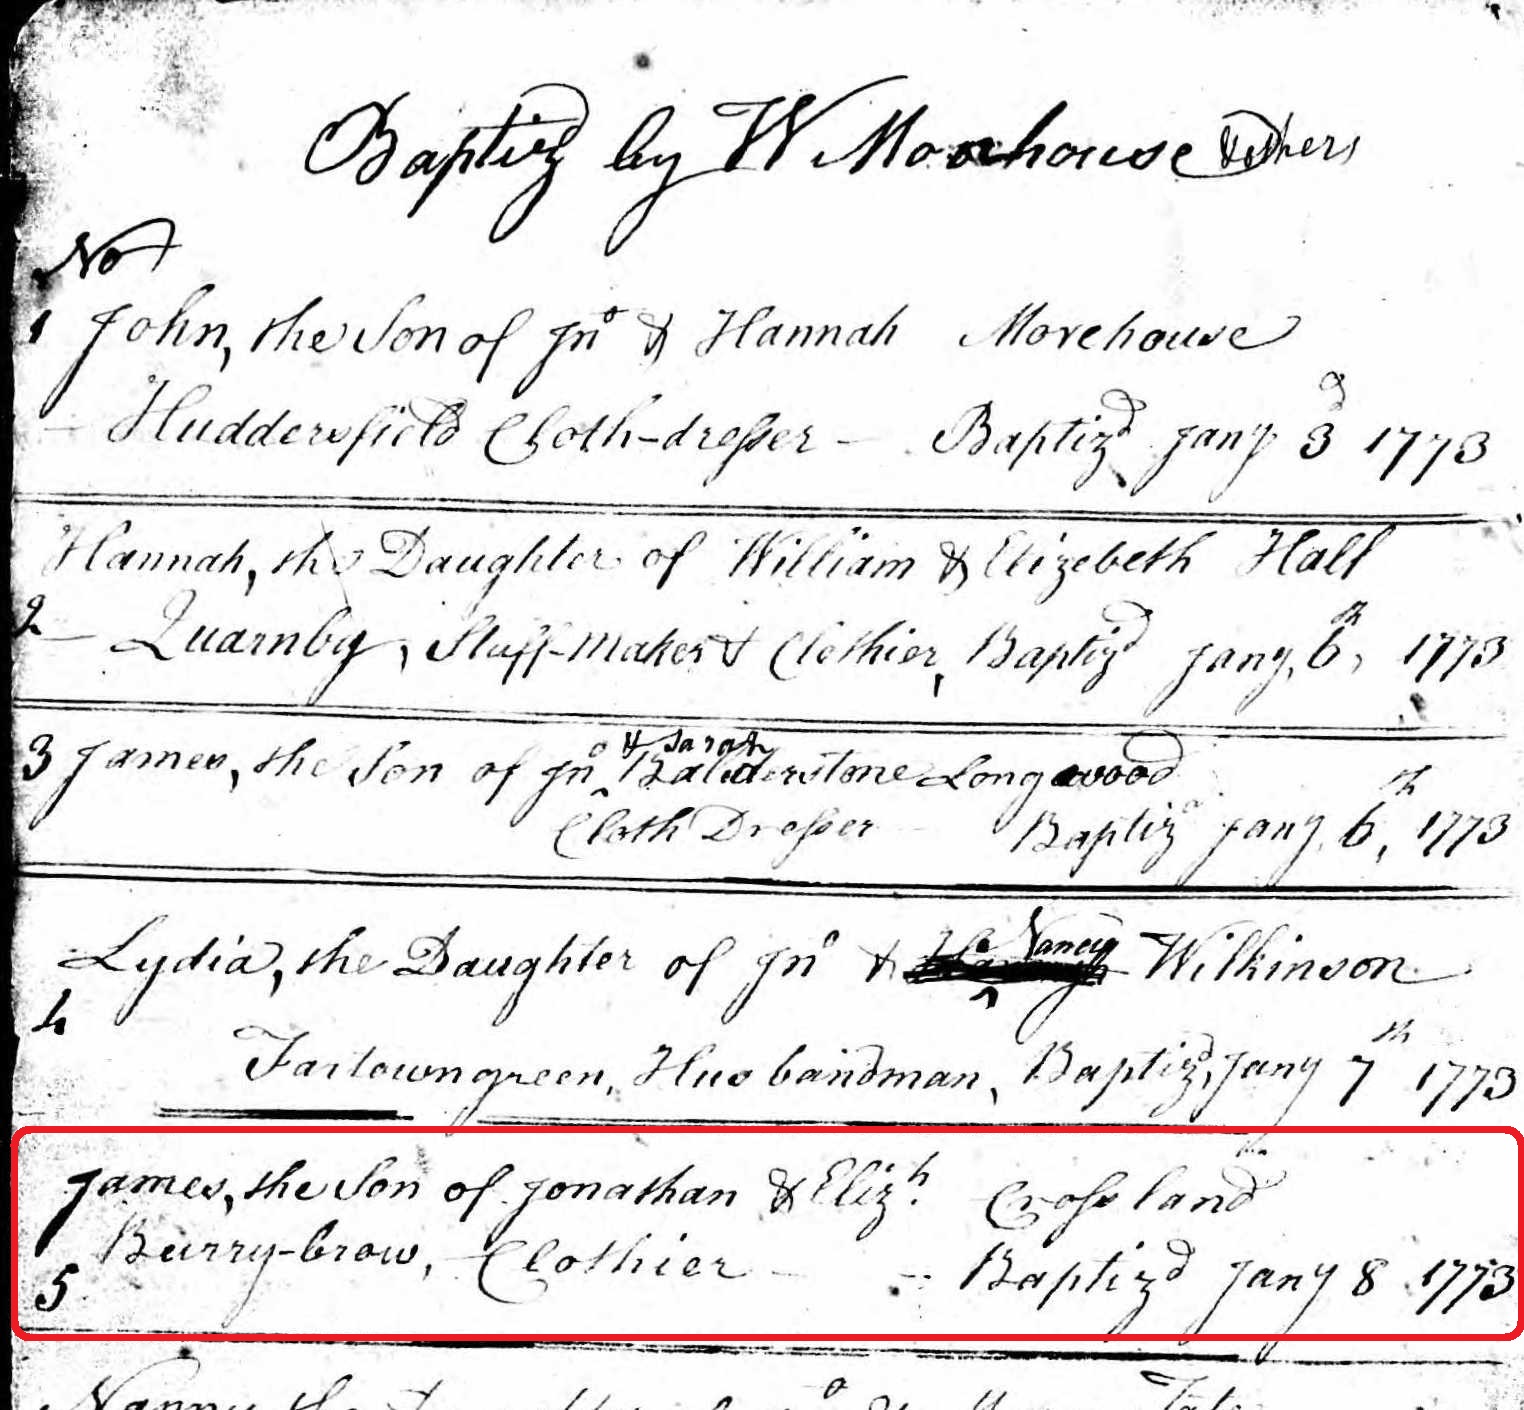 Baptiz'd by W Moorhouse & others
No
1 John, the Son of Jno & Hannah Morehouse
- Huddersfield Cloth-dresser - Baptizd Jany 3d 1773
Hannah, the Daughter of William & Elizebeth Hall
2 - Quarnby, Stuff-maker & Clothier, Baptizd Jany, 6th, 1773
& Sarah
3 James, the Son of Jno ^ Balderstone Longwood
Cloth Dresser - Baptizd Jany, 6th, 1773
Nancy
Lydia, the Daughter of Jno & ^ Wilkinson
4
Fartowngreen, Husbandman, Baptizd, Jany 7th 1773
James, the Son of Jonathan & Elizh. Crossland
Burry-brow, Clothier - - Baptizd Jany 8 1773
5
Nanny the